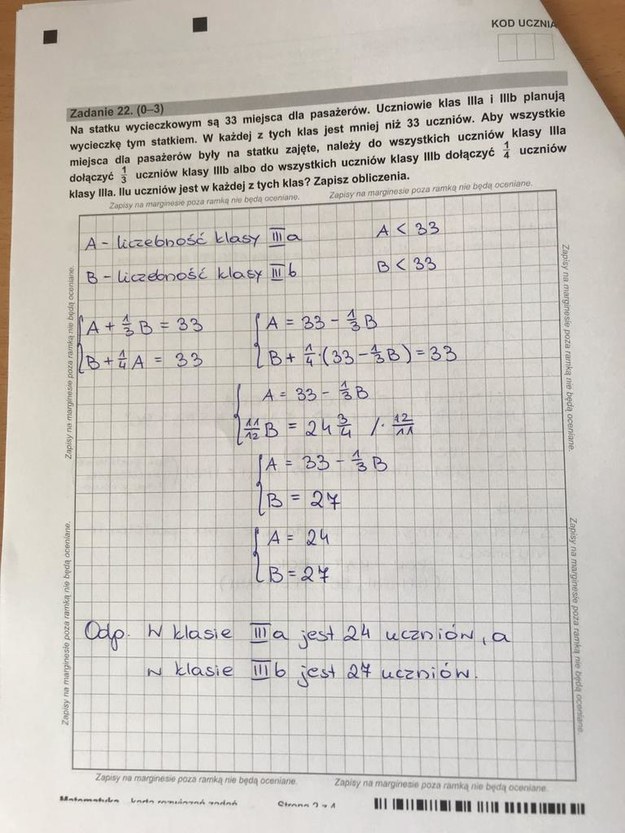 KOD UCZNIA
Zadanie 22. (0–3)
Na statku wycieczkowym są 33 miejsca dla pasażerów. Uczniowie klas IIIa i IIIb planują
wycieczkę tym statkiem. W każdej z tych klas jest mniej niż 33 uczniów. Aby wszystkie
miejsca dla pasażerów były na statku zajęte, należy do wszystkich uczniów klasy IIIa
dołączyć 1/3 uczniów klasy IIIb albo do wszystkich uczniów klasy IIIb dołączyć 1/4 uczniów
klasy IIIa. Ilu uczniów jest w każdej z tych klas? Zapisz obliczenia.
Zapisy na marginesie poza ramką nie będą oceniane. Zapisy na marginesie poza ramką nie będą oceniane.
A - liczebność klasy III a A < 33
B - liczebność klasy III b B < 33
A + 1/3 B = 33 A = 33 - 1/3 B
B + 1/4 A = 33 B + 1/4 · (33 - 1/3 B) = 33
A = 33 - 1/3 B
11/12 B = 24 3/4 /· 12/11
A = 33 - 1/3 B
B = 27
A = 24
B = 27
Odp. W klasie III a jest 24 uczniów, a
w klasie III b jest 27 uczniów.
Zapisy na marginesie poza ramką nie będą oceniane.
Zapisy na marginesie poza ramką nie będą oceniane.
Zapisy na marginesie poza ramką nie będą oceniane.
Zapisy na marginesie poza ramką nie będą oceniane.
Zapisy na marginesie poza ramką nie będą oceniane. Zapisy na marginesie poza ramką nie będą oceniane.